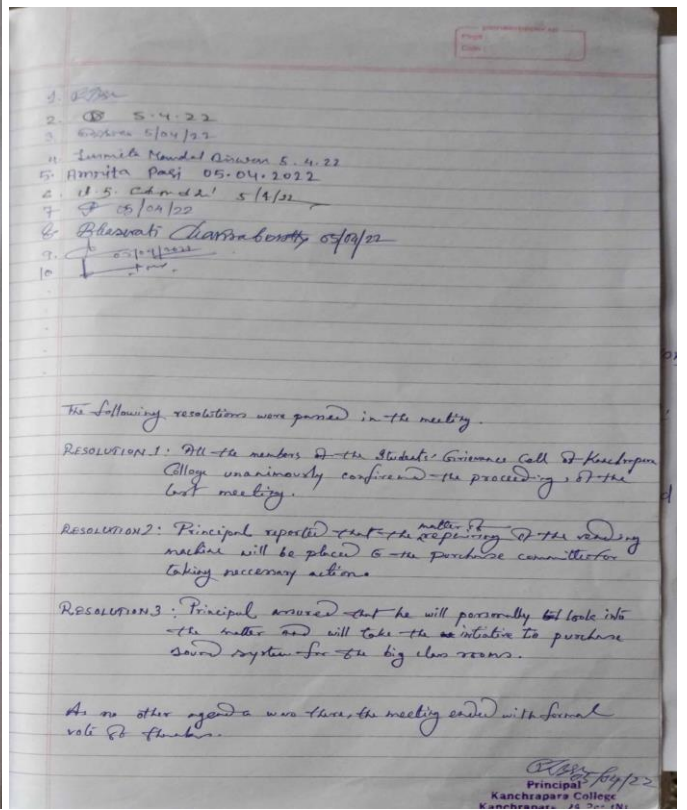 Page
Date
1.
2. 5.4.22
3. 5/04/22
4. Mondal Biswas 5.4.22
5. Amrita Pasi 05.04.2022
6. 5/4/22
7 05/04/22
8. Bhaswati Chakraborty 05/04/22
9. 05/04/2022
10
The following resolutions were passed in the meeting.
RESOLUTION 1: All the members of the Students' Grievance Cell of Kanchrapara
College unanimously confirmed the proceedings of the
last meeting.
RESOLUTION 2: Principal reported that the matter of repairing of the vending
machine will be placed to the purchase committee for
taking neccessary action.
RESOLUTION 3: Principal assured that he will personally look into
the matter and will take the initiative to purchase
sound system for the big class rooms.
As no other agenda was there, the meeting ended with formal
vote of thanks.
05/04/22
Principal
Kanchrapara College
Kanchrapara